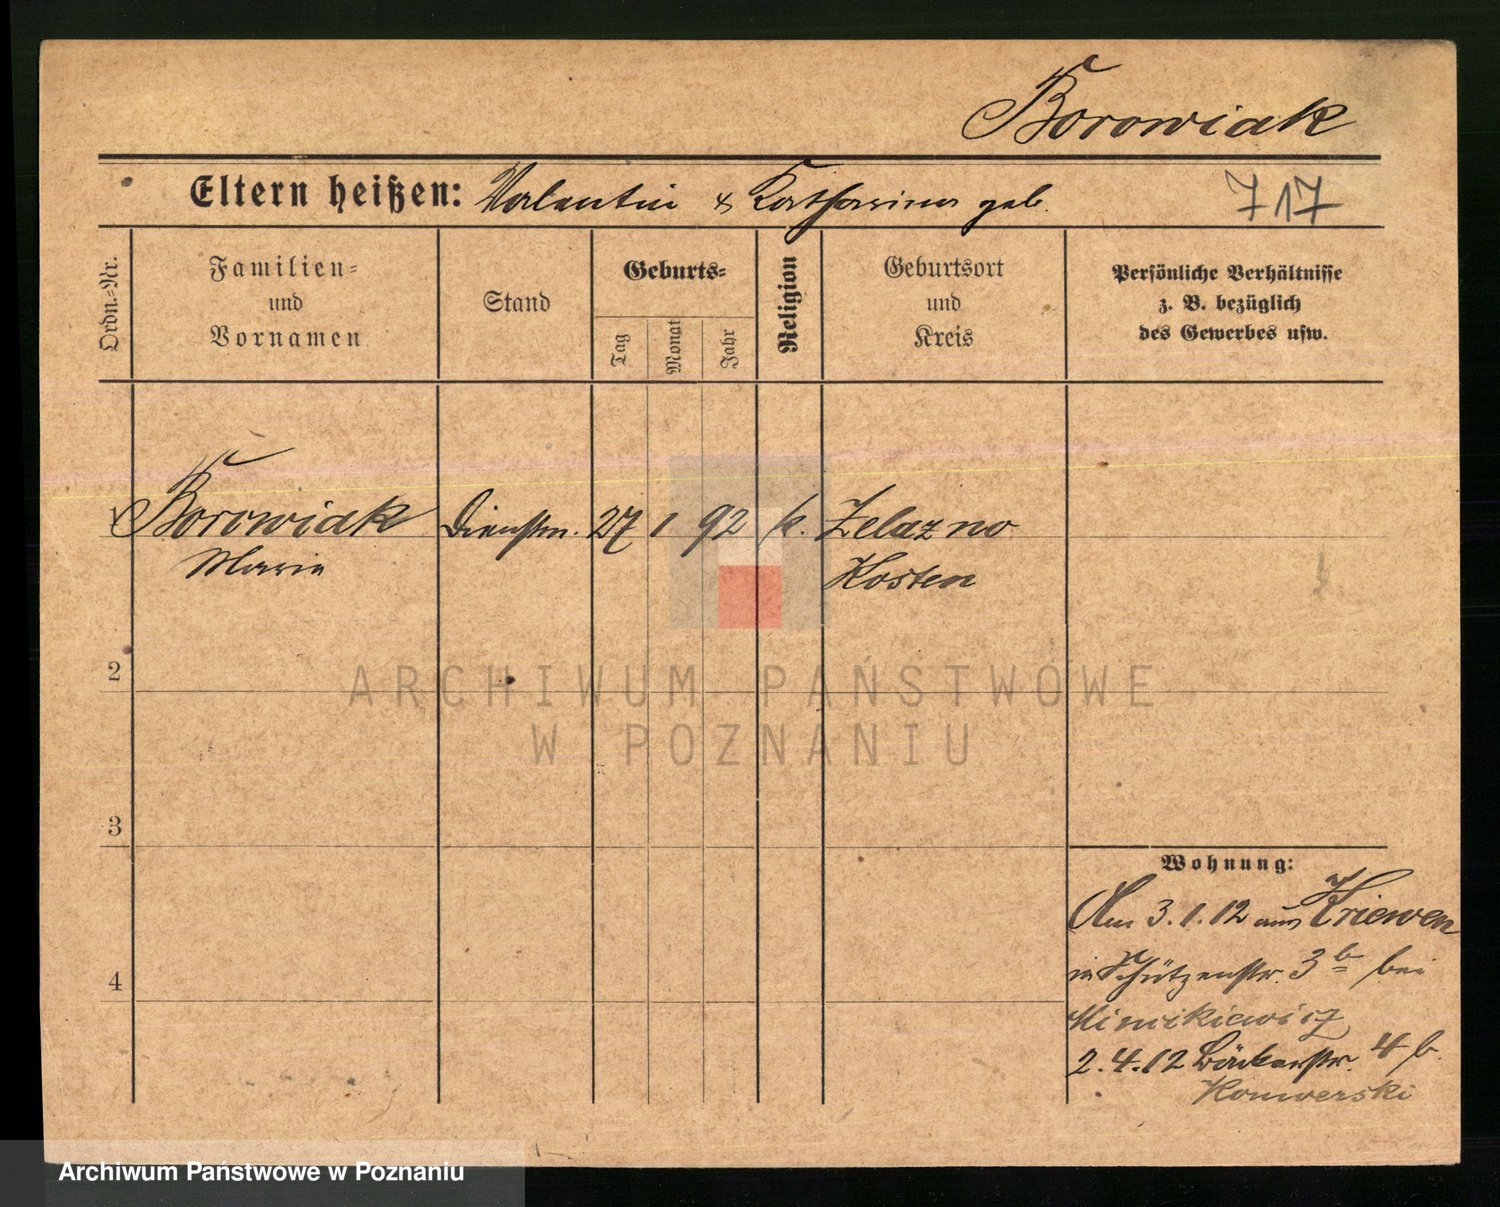 Borowiak
Eltern heißen: Valentin & Katharina geb.
717
Ordn.=Nr.
Familien=
und
Vornamen
Stand
Geburts=
Tag
Monat
Jahr
Religion
Geburtsort
und
Kreis
Persönliche Verhältnisse
z. B. bezüglich
des Gewerbes usw.
1 Borowiak Dienstm. 27 1 92 k. Zelazno
Marie Kosten
2
ARCHIWUM PAŃSTWOWE
W POZNANIU
3
Wohnung:
Am 3.1.12 aus Kriewen
in Schützenstr. 3b bei
4
2.4.12 Bäckerstr. 4 b.
Konwerski
Archiwum Państwowe w Poznaniu